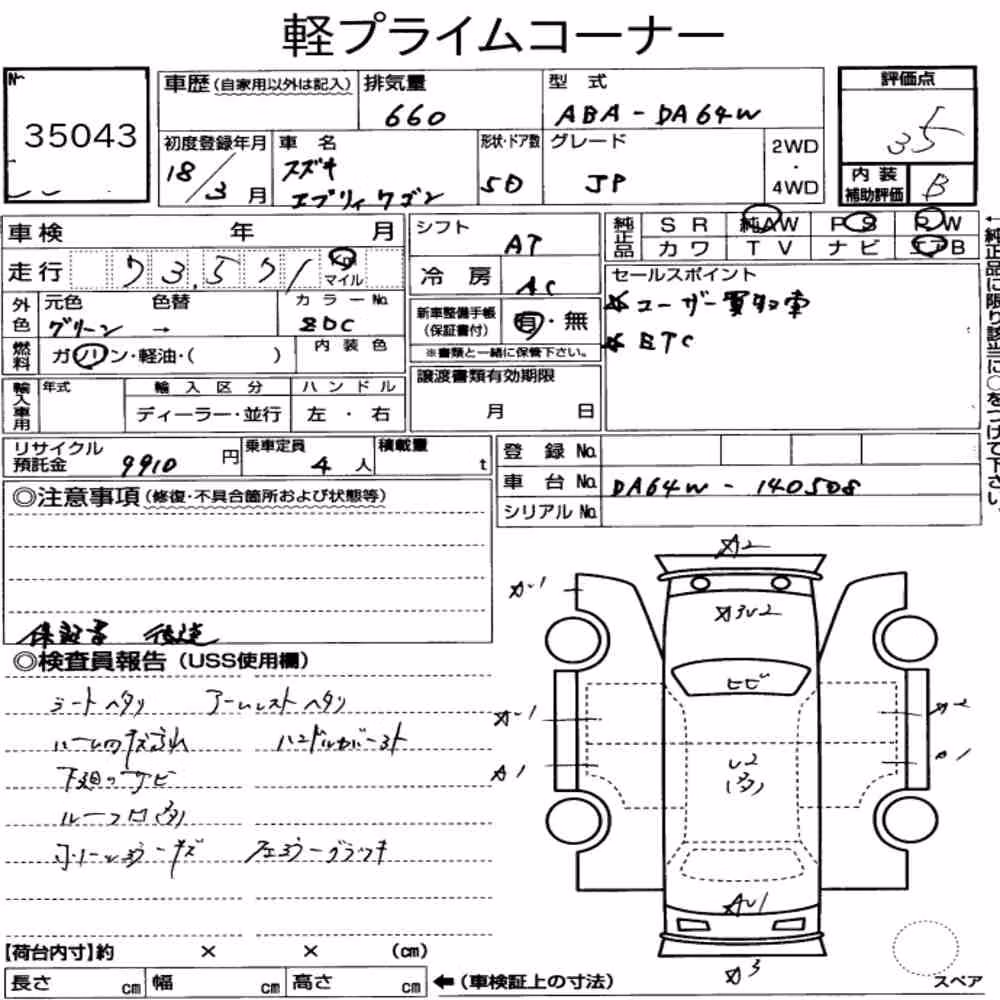 軽プライムコーナー
No. 35043
車歴(自家用以外は記入) 排気量 660 型式 ABA-DA64W
評価点 35
初度登録年月 18/3月 車名 スズキ エブリィワゴン 形状・ドア数 5D グレード JP 2WD・4WD
内装補助評価 B
車検 年 月
走行 73,571 Km マイル
シフト AT
冷房 AC
純正品 SR 純AW PS PW
カワ TV ナビ エアB
セールスポイント
☆ユーザー買取車
☆ETC
←純正品に限り該当に○をつけて下さい。
外色 元色 グリーン 色替 → カラーNo. ZDC
燃料 ガソリン・軽油・( ) 内装色
新車整備手帳(保証書付) 有・無
※書類と一緒に保管下さい。
輸入車用 年式 輸入区分 ディーラー・並行 ハンドル 左・右
譲渡書類有効期限
月 日
リサイクル預託金 9910円 乗車定員 4人 積載量 t
登録No.
車台No. DA64W-140508
シリアルNo.
◎注意事項(修復・不具合箇所および状態等)
保証書 後送
◎検査員報告(USS使用欄)
シートヘタリ アームレストヘタリ
ルーム内キズ汚れ ハンドルカバースト
下廻りサビ
ルーフ凹
A2
A-1
A3U2
ヒビ
A-1
A-2
A1
A1
U2
AU1
A3
【荷台内寸】約 × × (cm)
長さ cm 幅 cm 高さ cm ←(車検証上の寸法)
スペア